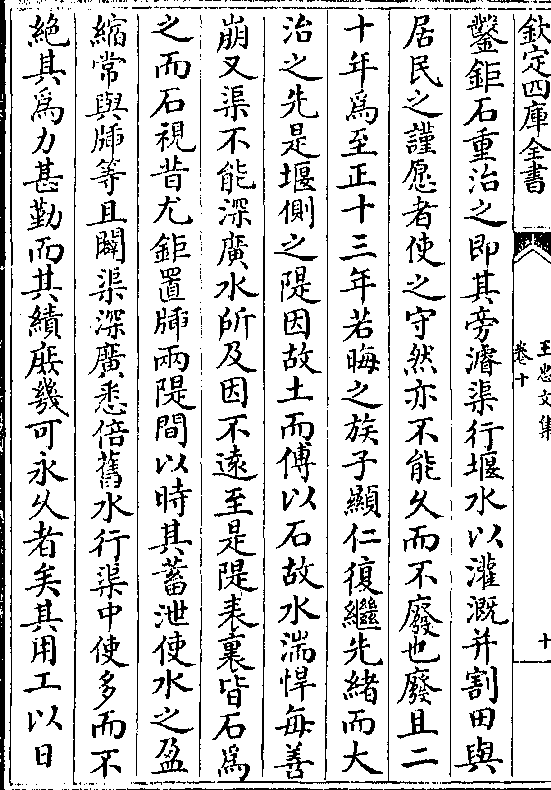 欽定四庫全書
王忠文集
卷十
十
鑿鉅石重治之即其旁濬渠行堰水以灌溉并割田與
居民之謹愿者使之守然亦不能久而不廢也廢且二
十年為至正十三年若晦之族子顯仁復繼先緒而大
治之先是堰側之隄因故土而傅以石故水湍悍每善
崩又渠不能深廣水所及因不遠至是隄表裏皆石為
之而石視昔尤鉅置牐兩隄間以時其蓄泄使水之盈
縮常與牐等且闢渠深廣悉倍舊水行渠中使多而不
絶其為力甚勤而其績庶幾可永久者矣其用工以日